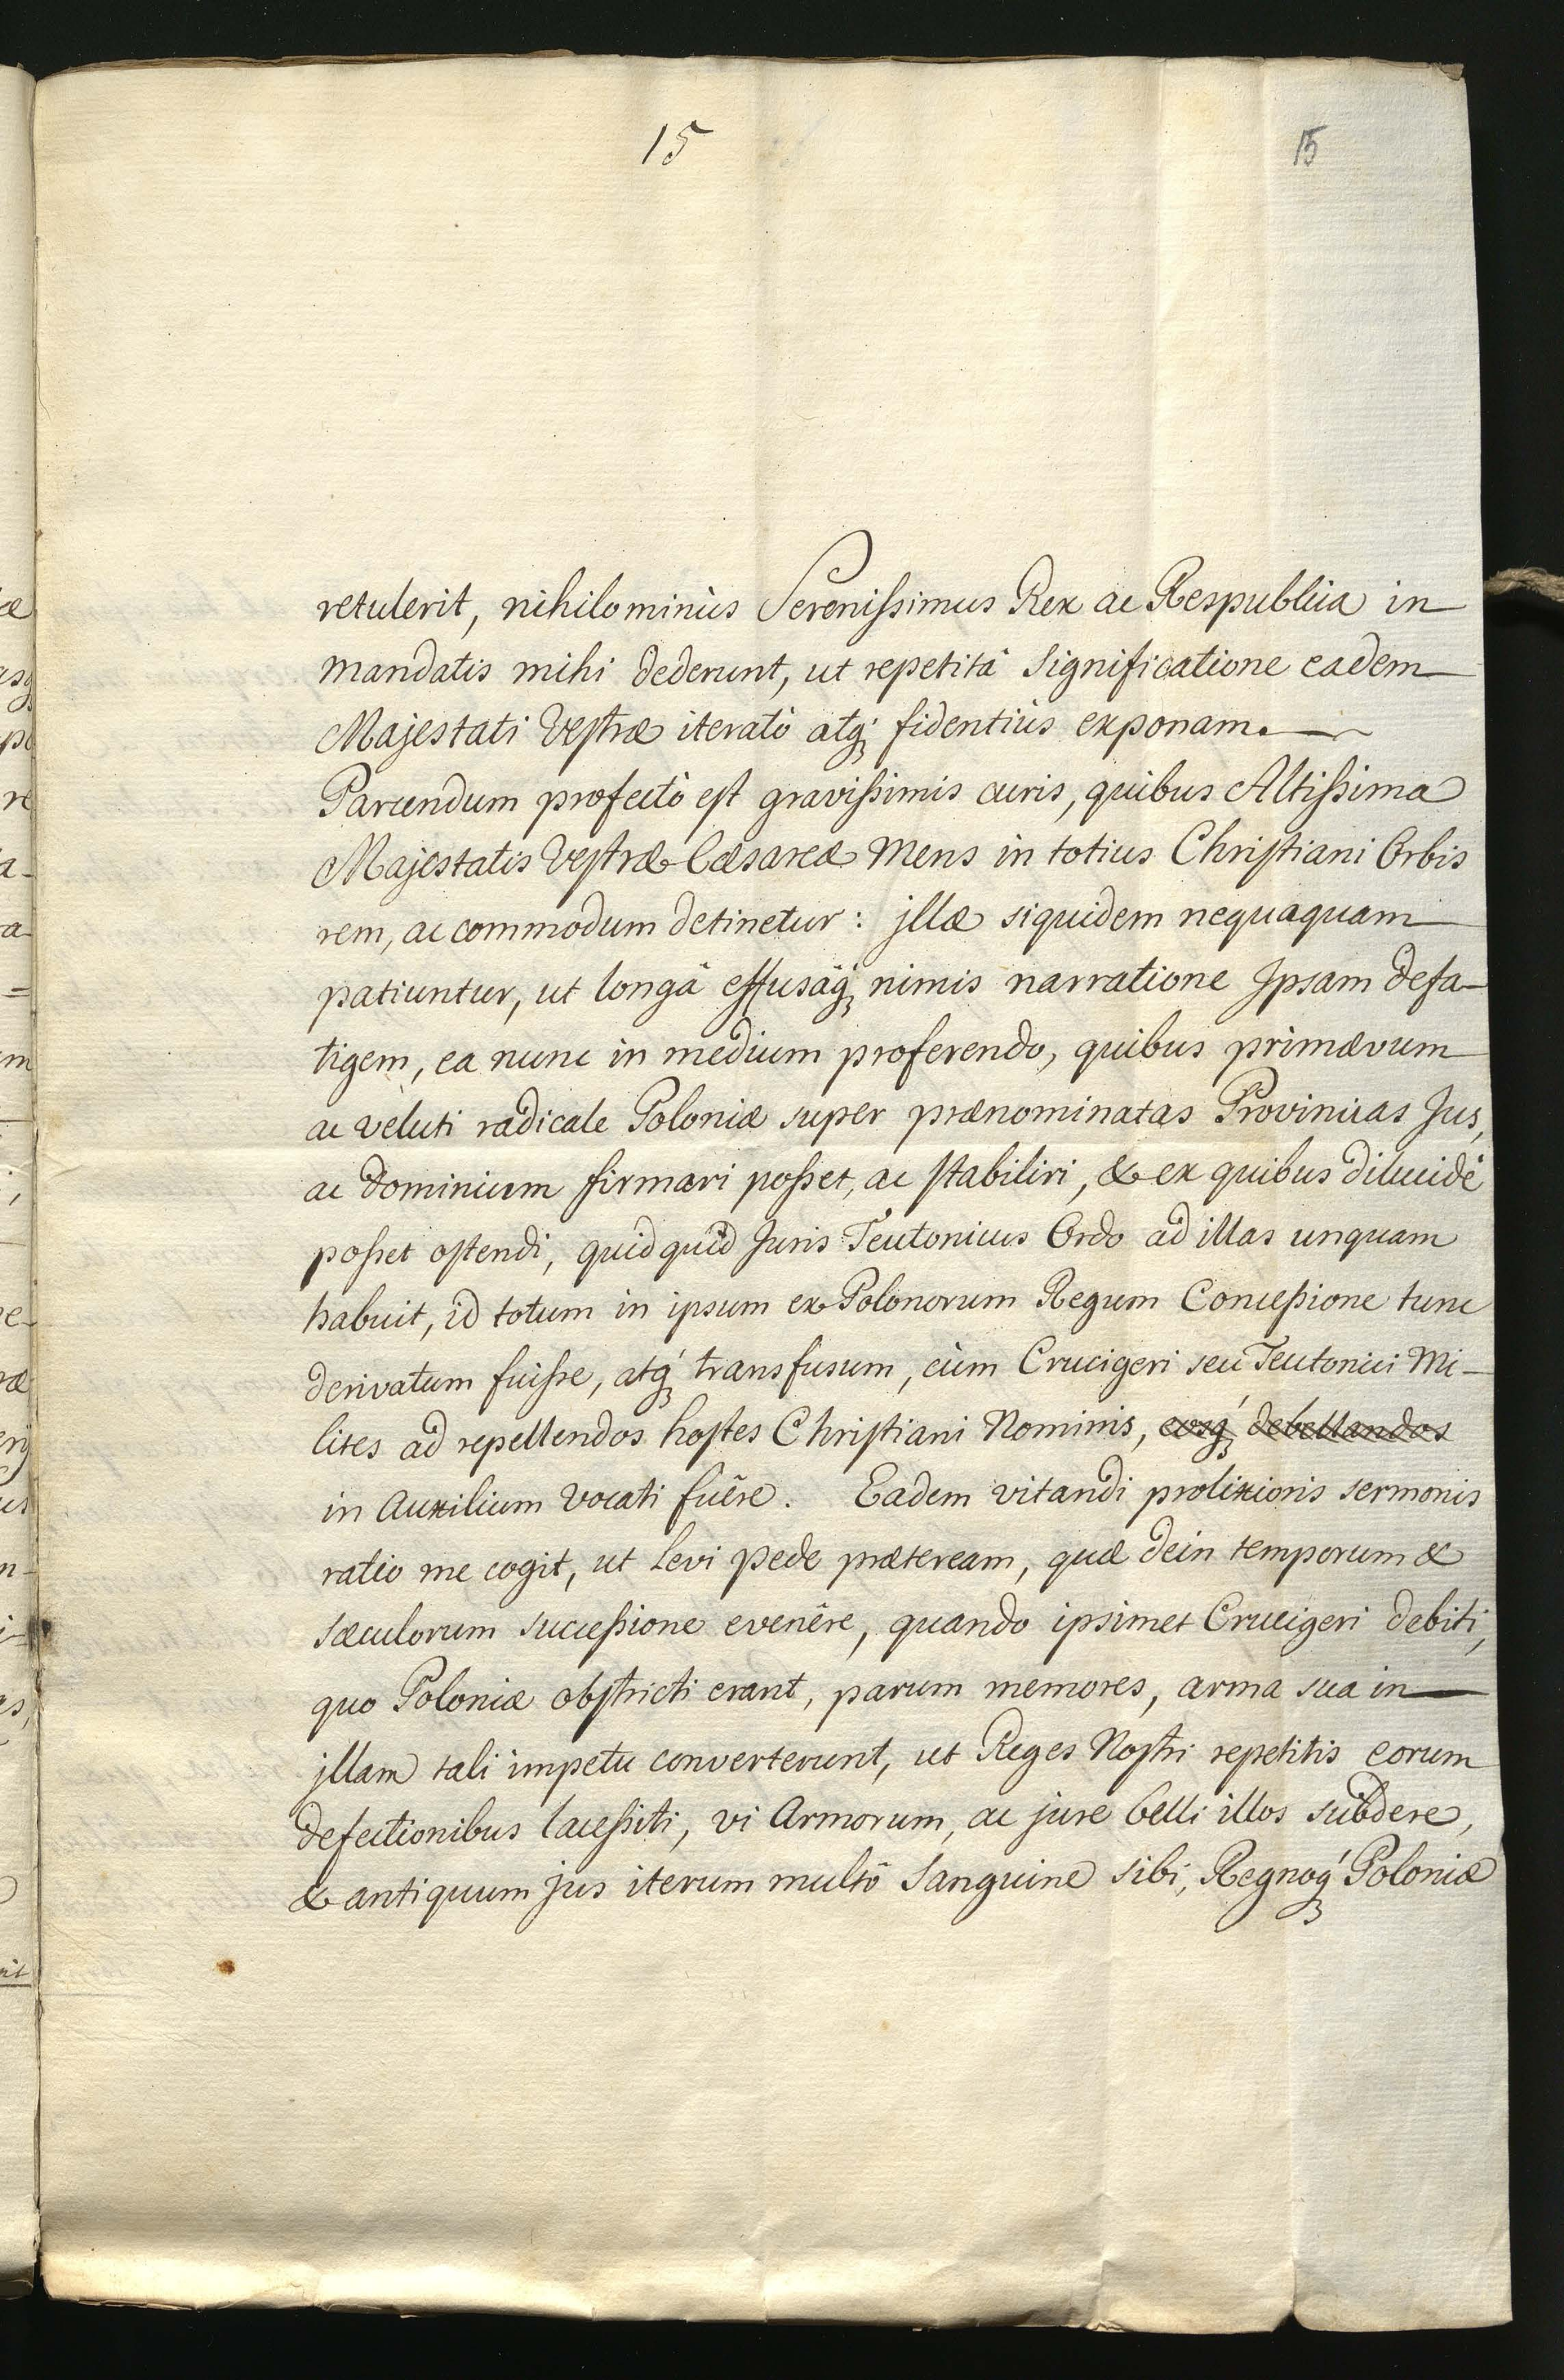 15
15
retulerit, nihilominùs Serenissimus Rex ac Respublica in
mandatis mihi dederunt, ut repetitâ significatione eadem
Majestati Vestræ iteratò atq; fidentiùs exponam.
Parcendum profectò est gravissimis curis, quibus Altissima
Majestatis Vestræ Cæsareæ Mens in totius Christiani Orbis
rem, ac commodum detinetur: jllæ siquidem nequaquam
patiuntur, ut longâ effusâq; nimis narratione Jpsam defa-
tigem, ea nunc in medium proferendo, quibus primævum
ac veluti radicale Poloniæ super prænominatas Provincias Jus,
ac dominium firmari posset, ac stabiliri, & ex quibus dilucidè
posset ostendi, quidquid Juris Teutonicus Ordo ad illas unquam
habuit, id totum in ipsum ex Polonorum Regum Concessione tunc
derivatum fuisse, atq; transfusum, cùm Crucigeri seu Teutonici Mi-
lites ad repellendos hostes Christiani Nominis, eosq; debellandos
in Auxilium vocati fuêre. Eadem vitandi prolixioris sermonis
ratio me cogit, ut levi pede præteream, quæ dein temporum &
sæculorum successione evenêre, quando ipsimet Crucigeri debiti,
quo Poloniæ obstricti erant, parum memores, arma sua in
jllam tali impetu converterunt, ut Reges Nostri repetitis eorum
defectionibus lacessiti, vi Armorum, ac jure belli illos subdere,
& antiquum jus iterum multô Sanguine sibi, Regnoq; Poloniæ